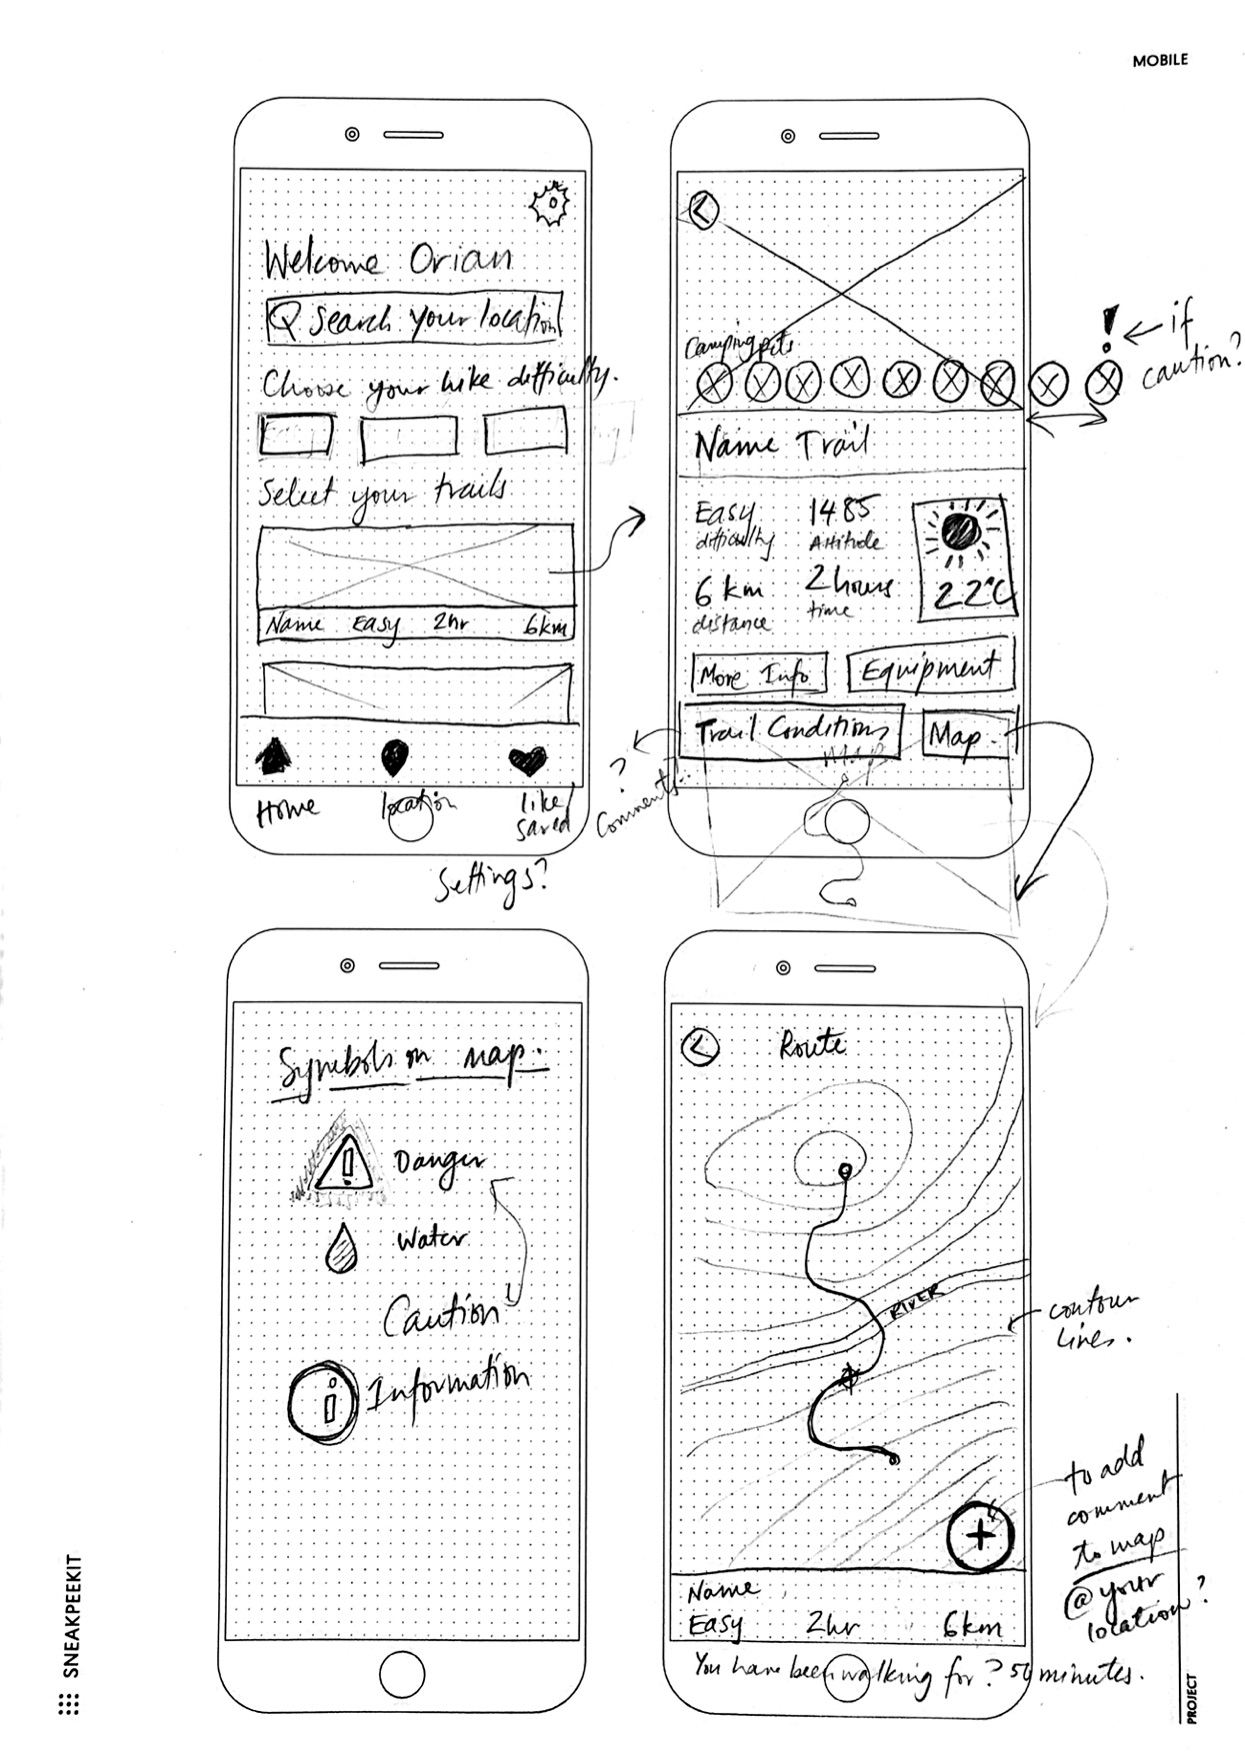 MOBILE
Welcome Orian
Search your location
Choose your hike difficulty.
Select your trails
Name Easy 2hr 6km
Home location like/
saved
Settings?
! ← if
caution?
Name Trail
Easy 1485
difficulty Altitude
22°C
6 km 2 hours
distance time
More Info Equipment
Trail Conditions Map
Map
?
Comments..
Symbols on map.
! Danger
Water
Caution
i Information
Route
RIVER
contour
lines.
to add
comment
to map
@ your
location?
+
Name
Easy 2hr 6km
You have been walking for ? 50 minutes.
SNEAKPEEKIT
PROJECT